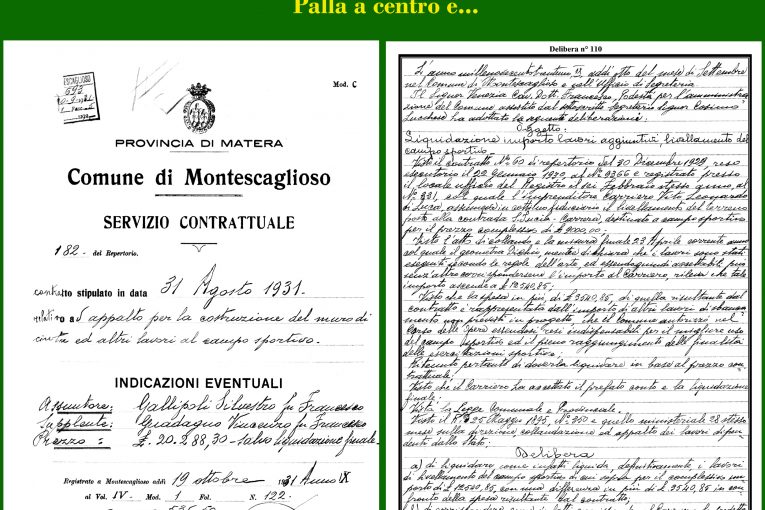 Palla a centro e...
Mod. C
PROVINCIA DI MATERA
Comune di Montescaglioso
SERVIZIO CONTRATTUALE
182. del Repertorio.
contratto stipulato in data 31 Agosto 1931.
relativo ad appalto per la costruzione del muro di
cinta ed altri lavori al campo sportivo.
INDICAZIONI EVENTUALI
Assuntore: Gallipoli Silvestro fu Francesco
Supplente: Guadagno Vincenzo fu Francesco
Prezzo = £. 20.288,30 - salvo liquidazione finale.
Registrato a Montescaglioso addì 19 ottobre 1931 Anno IX
al Vol. IV. Mod. 1 Fol. N. 122.
Delibera n° 110
L'anno millenovecentotrentuno, addì otto del mese di Settembre
nel Comune di Montescaglioso e nell'Ufficio di Segreteria
Il Signor Venezia Cav. Dott. Francesco, Podestà per l'amministra
zione del Comune assistito dal sottoscritto Segretario Signor Cosimo
Lucchese ha adottato la seguente deliberazione:
Oggetto:
Liquidazione importo lavori aggiuntivi livellamento del
campo sportivo.
Visto il contratto N° 60 di repertorio del 30 Dicembre 1929, reso
esecutorio il 22 Gennaio 1930, al N° 9366 e registrato presso
il locale ufficio del Registro il sei Febbraio stesso anno, al
N° 321, col quale l'imprenditore Carriero Vito Leonardo
di Luca, assumeva in cottimo fiduciario il livellamento del terreno
posto alla contrada S. Lucia - Carrera, destinato a campo sportivo
per il prezzo complessivo di £ 9000,00:
Visto l'atto di collaudo e la misura finale 23 Aprile corrente anno
col quale il geometra mentre dichiara che i lavori sono stati
eseguiti secondo le regole dell'arte, ed essendo quindi accettabili può
senz'altro corrispondersene l'importo al Carriero, rileva che tale
importo ascende a £ 12540,85:
Visto che la spesa in più, di £ 3540,85, di quella risultante dal
contratto è rappresentata dall'importo di altri lavori di sbanca
mento non previsti in progetto, che il Comune autorizzò nel
corso delle opere essendosi resi indispensabili per il migliore uso
del campo sportivo ed il pieno raggiungimento delle finalità
delle esercitazioni sportive:
Ritenuto pertanto di doverla liquidare in base al prezzo con
trattuale:
Visto che il Carriero ha accettato il prefato conto e la liquidazione
finale:
Vista la Legge Comunale e Provinciale:
Visto il R° 25 Maggio 1895, N° 350 e quello ministeriale 28 stesso
mese sulla gestione, collaudazione ed appalto dei lavori dipen
denti dallo Stato:
Delibera
a) di liquidare come infatti liquida, definitivamente, i lavori
di livellamento del campo sportivo di cui sopra per il complessivo im
porto di £ 12540,85, con una differenza in più di £ 3540,85 in con
fronto della spesa risultante dal contratto;